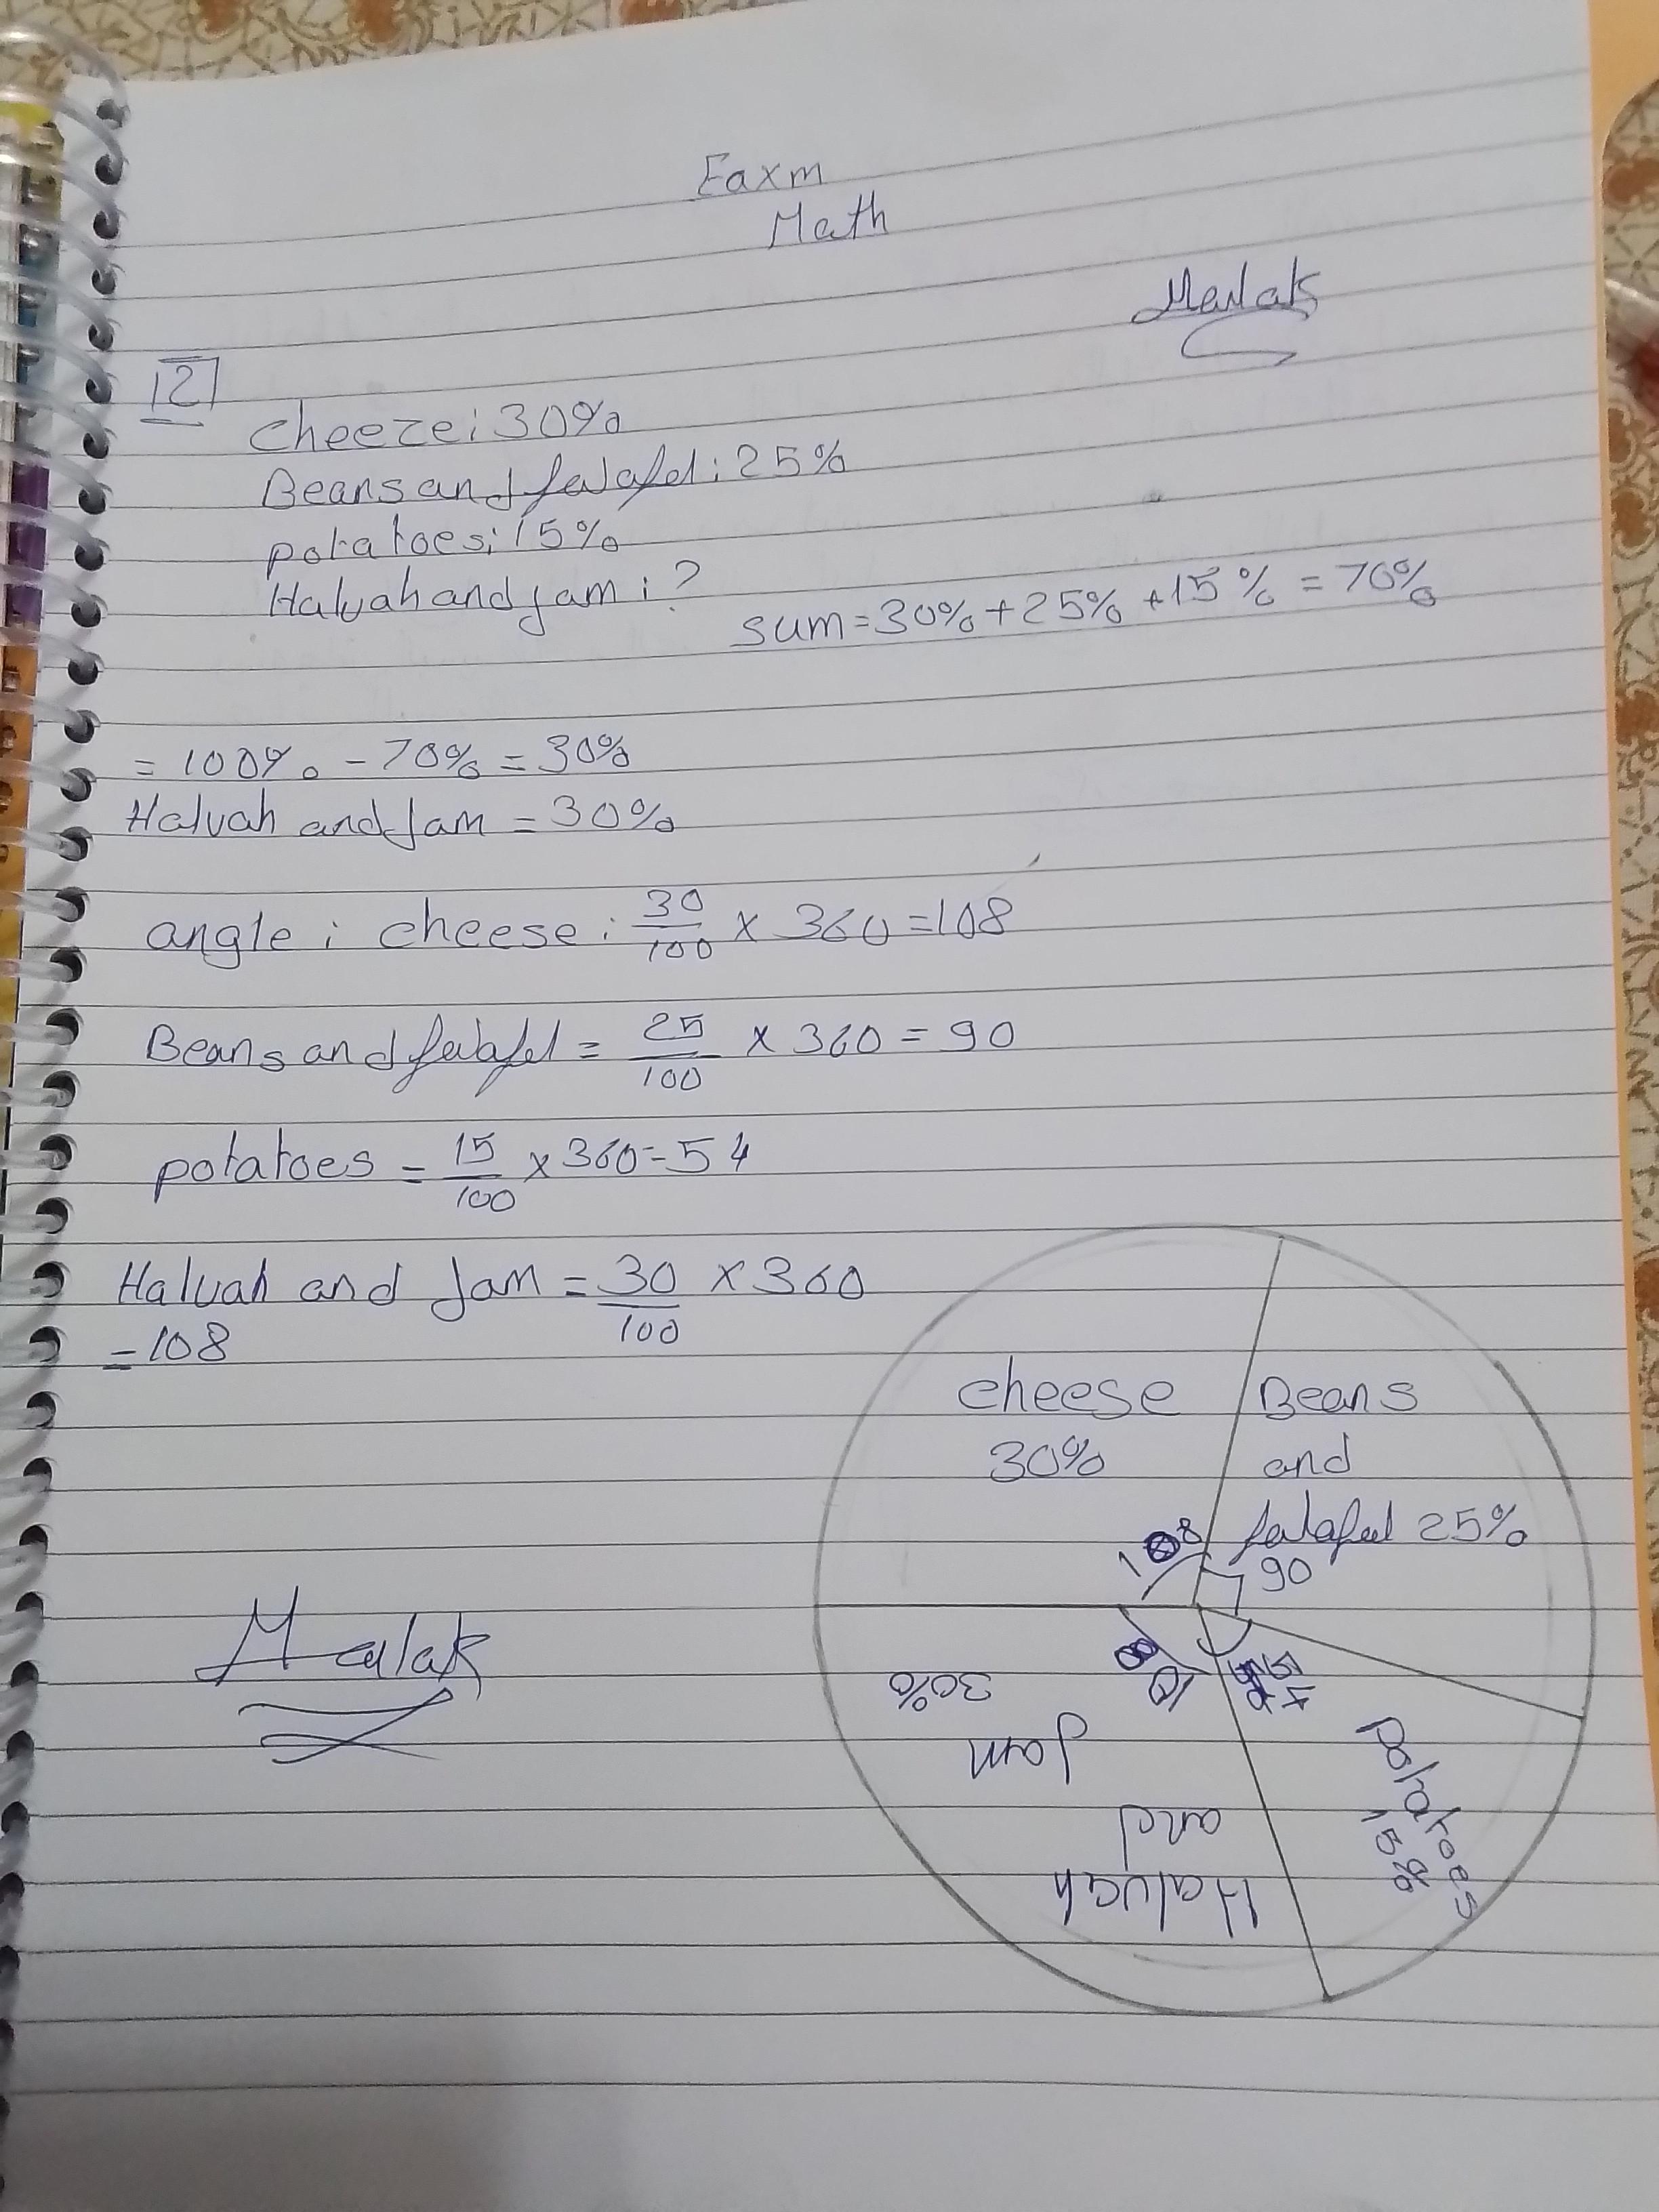 Eaxm
Math
Malak
12
cheeze: 30%
Beans and falafel: 25%
potatoes: 15%
Halvah and jam: ?
sum = 30% + 25% + 15% = 70%
= 100% - 70% = 30%
Halvah and Jam = 30%
angle: cheese: 30/100 × 360 = 108
Beans and falafel = 25/100 × 360 = 90
potatoes = 15/100 × 360 = 54
Halvah and Jam = 30/100 × 360
= 108
cheese
30%
108
Beans
and
falafel 25%
90
54
potatoes
15%
Halvah
and
Jam
30%
108
Malak